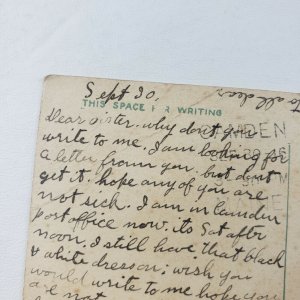 Sept 20.
To all dear
THIS SPACE FOR WRITING
Dear sister. why don't you
write to me. I am looking for
a letter from you. but dont
get it. hope any of you are
not sick. I am in Camden
post office now. its Sat after
noon. I still have that black
& white dress on. wish you
would write to me hope you
are not
CAMDEN